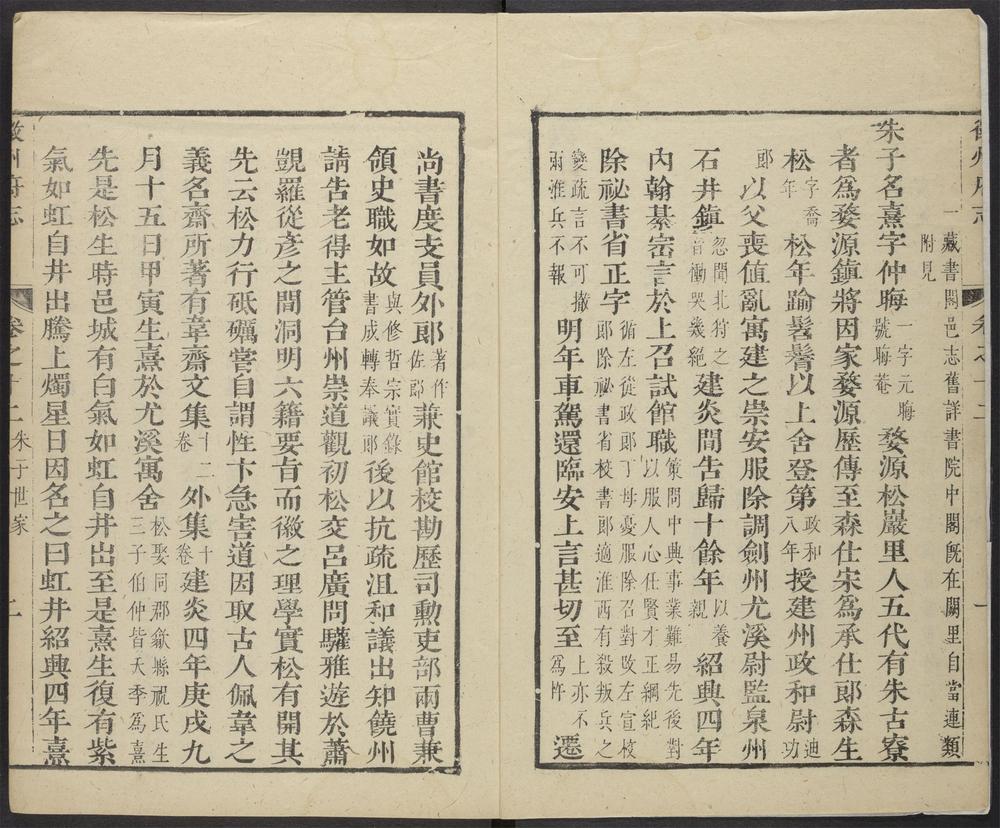 徽州府志
卷之十二
一
一藏書閣邑志舊詳書院中閣旣在闕里自當連類
附見
朱子名熹字仲晦一字元晦號晦菴婺源松巖里人五代有朱古寮
者爲婺源鎮將因家婺源歷傳至森仕宋爲承仕郎森生
松字喬年松年踰髫髻以上舍登第政和八年授建州政和尉迪功
郎以父喪値亂寓建之崇安服除調劍州尤溪尉監泉州
石井鎮忽聞北狩之音慟哭幾絶建炎間告歸十餘年以養親紹興四年
內翰綦崈言於上召試館職策問中興事業難易先後對以服人心任賢才正綱紀
除祕書省正字循左從政郎丁母憂服除召對改左宣敎郎除祕書省校書郎適淮西有殺叛兵之
變疏言不可撤兩淮兵不報明年車駕還臨安上言甚切至上亦不爲忤遷
尚書度支員外郎著作佐郎兼史館校勘歷司勲吏部兩曹兼
領史職如故與修哲宗實錄書成轉奉議郎後以抗疏沮和議出知饒州
請告老得主管台州崇道觀初松交呂廣問驩雅遊於蕭
覬羅從彥之間洞明六籍要旨而徽之理學實松有開其
先云松力行砥礪嘗自謂性卞急害道因取古人佩韋之
義名齋所著有韋齋文集十二卷外集十卷建炎四年庚戌九
月十五日甲寅生熹於尤溪寓舍松娶同郡歙縣祝氏生三子伯仲皆夭季爲熹
先是松生時邑城有白氣如虹自井出至是熹生復有紫
氣如虹自井出騰上燭星日因名之曰虹井紹興四年熹
徽州府志
卷之十二朱子世家
二